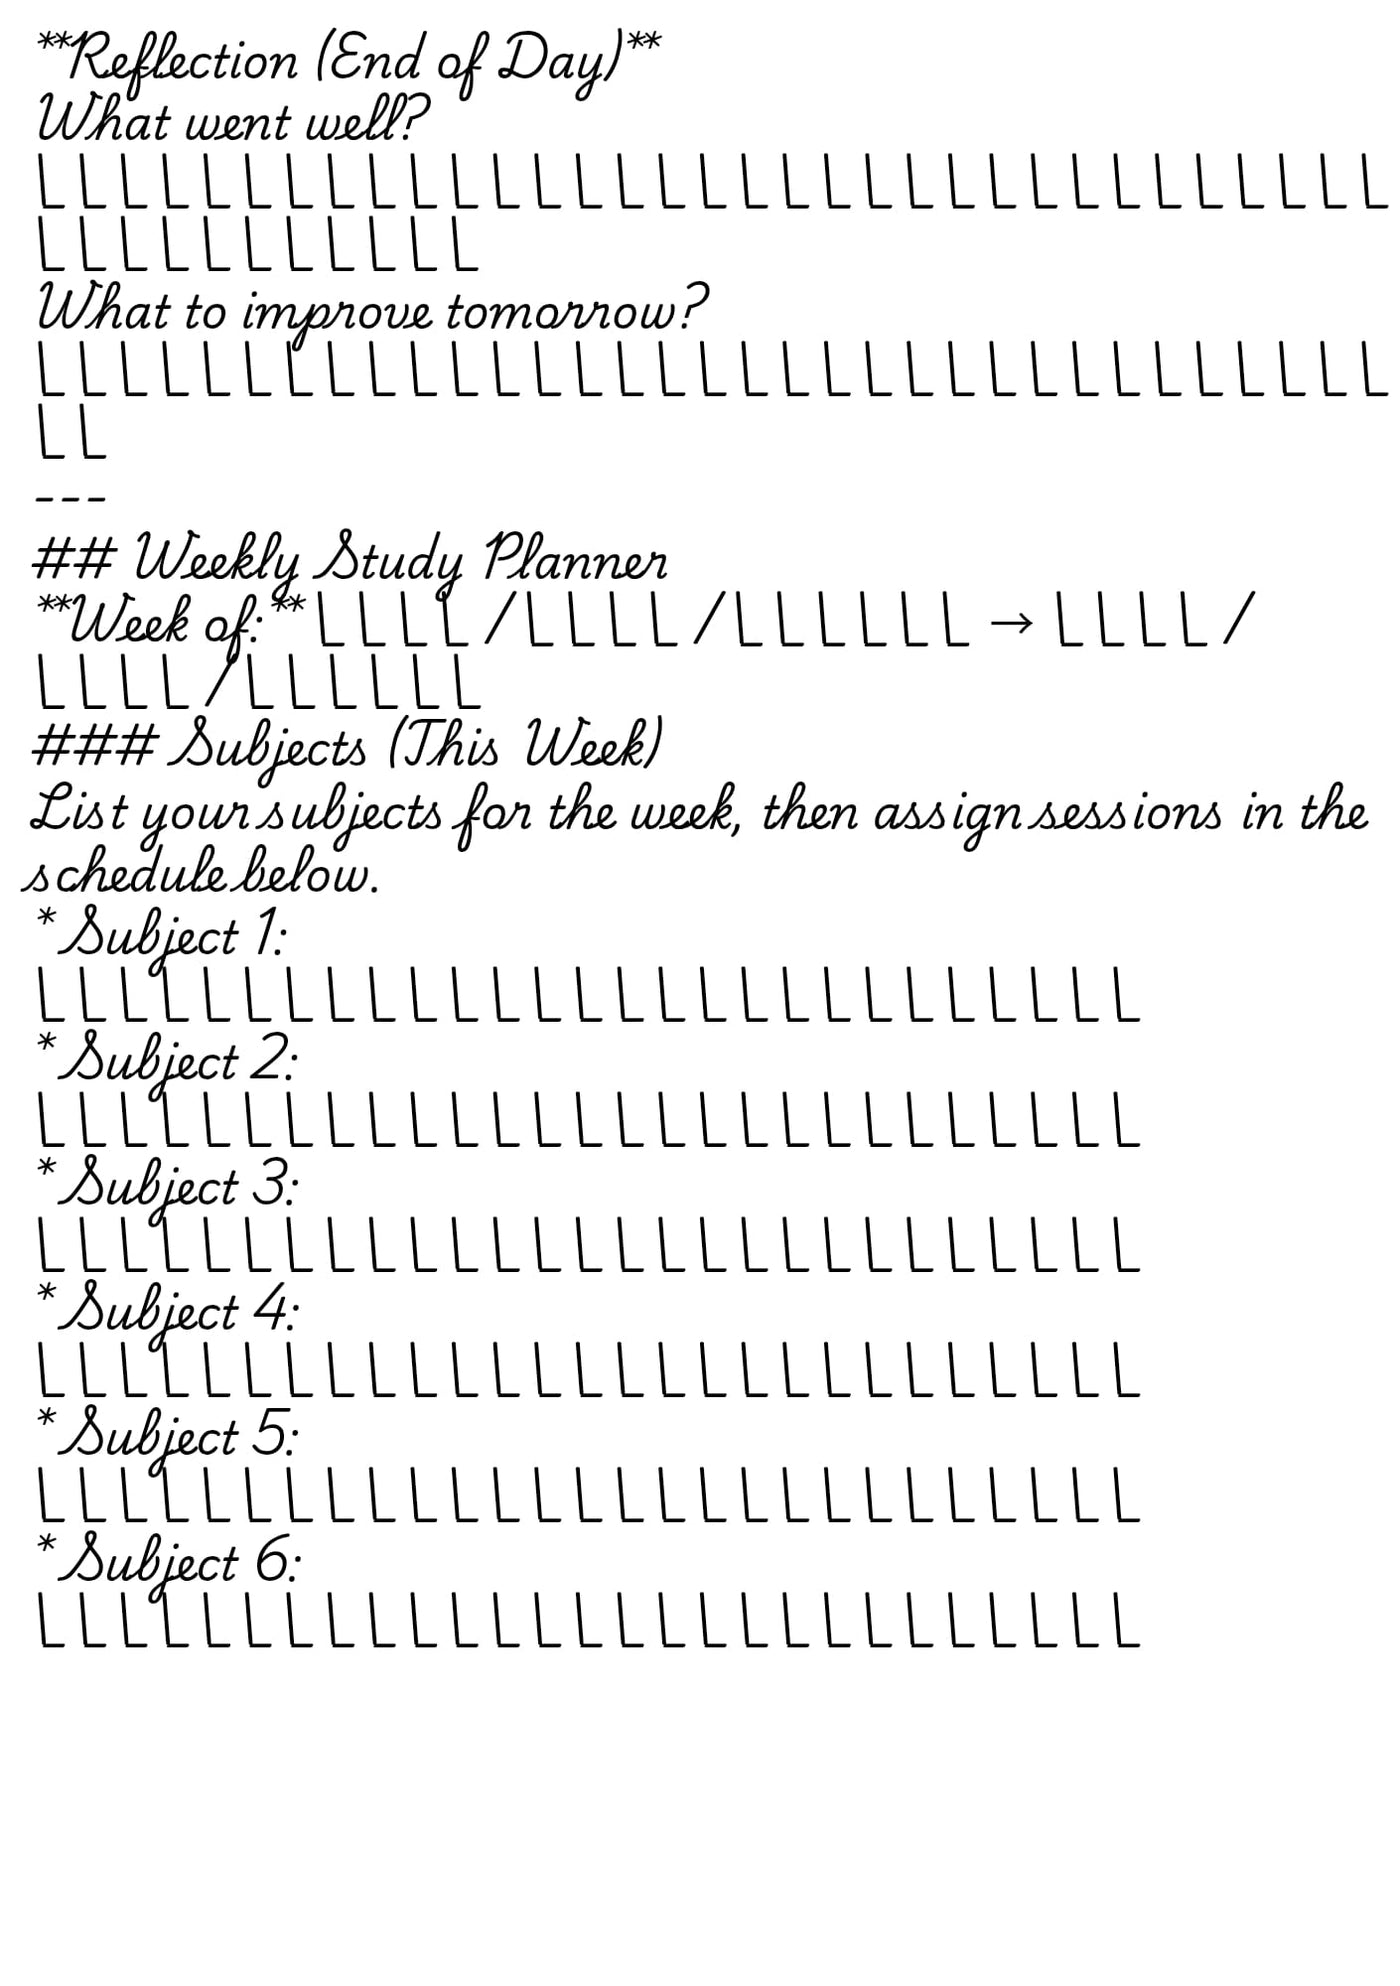 **Reflection (End of Day)**
What went well?
LLLLLLLLLLLLLLLLLLLLLLLLLLLLLLLLL
LLLLLLLLLLL
What to improve tomorrow?
LLLLLLLLLLLLLLLLLLLLLLLLLLLLLLLLL
LL
---
## Weekly Study Planner
**Week of:** LLLL/LLLL/LLLLLL → LLLL/
LLLL/LLLLLL
### Subjects (This Week)
List your subjects for the week, then assign sessions in the
schedule below.
* Subject 1:
LLLLLLLLLLLLLLLLLLLLLLLLLLL
* Subject 2:
LLLLLLLLLLLLLLLLLLLLLLLLLLL
* Subject 3:
LLLLLLLLLLLLLLLLLLLLLLLLLLL
* Subject 4:
LLLLLLLLLLLLLLLLLLLLLLLLLLL
* Subject 5:
LLLLLLLLLLLLLLLLLLLLLLLLLLL
* Subject 6:
LLLLLLLLLLLLLLLLLLLLLLLLLLL